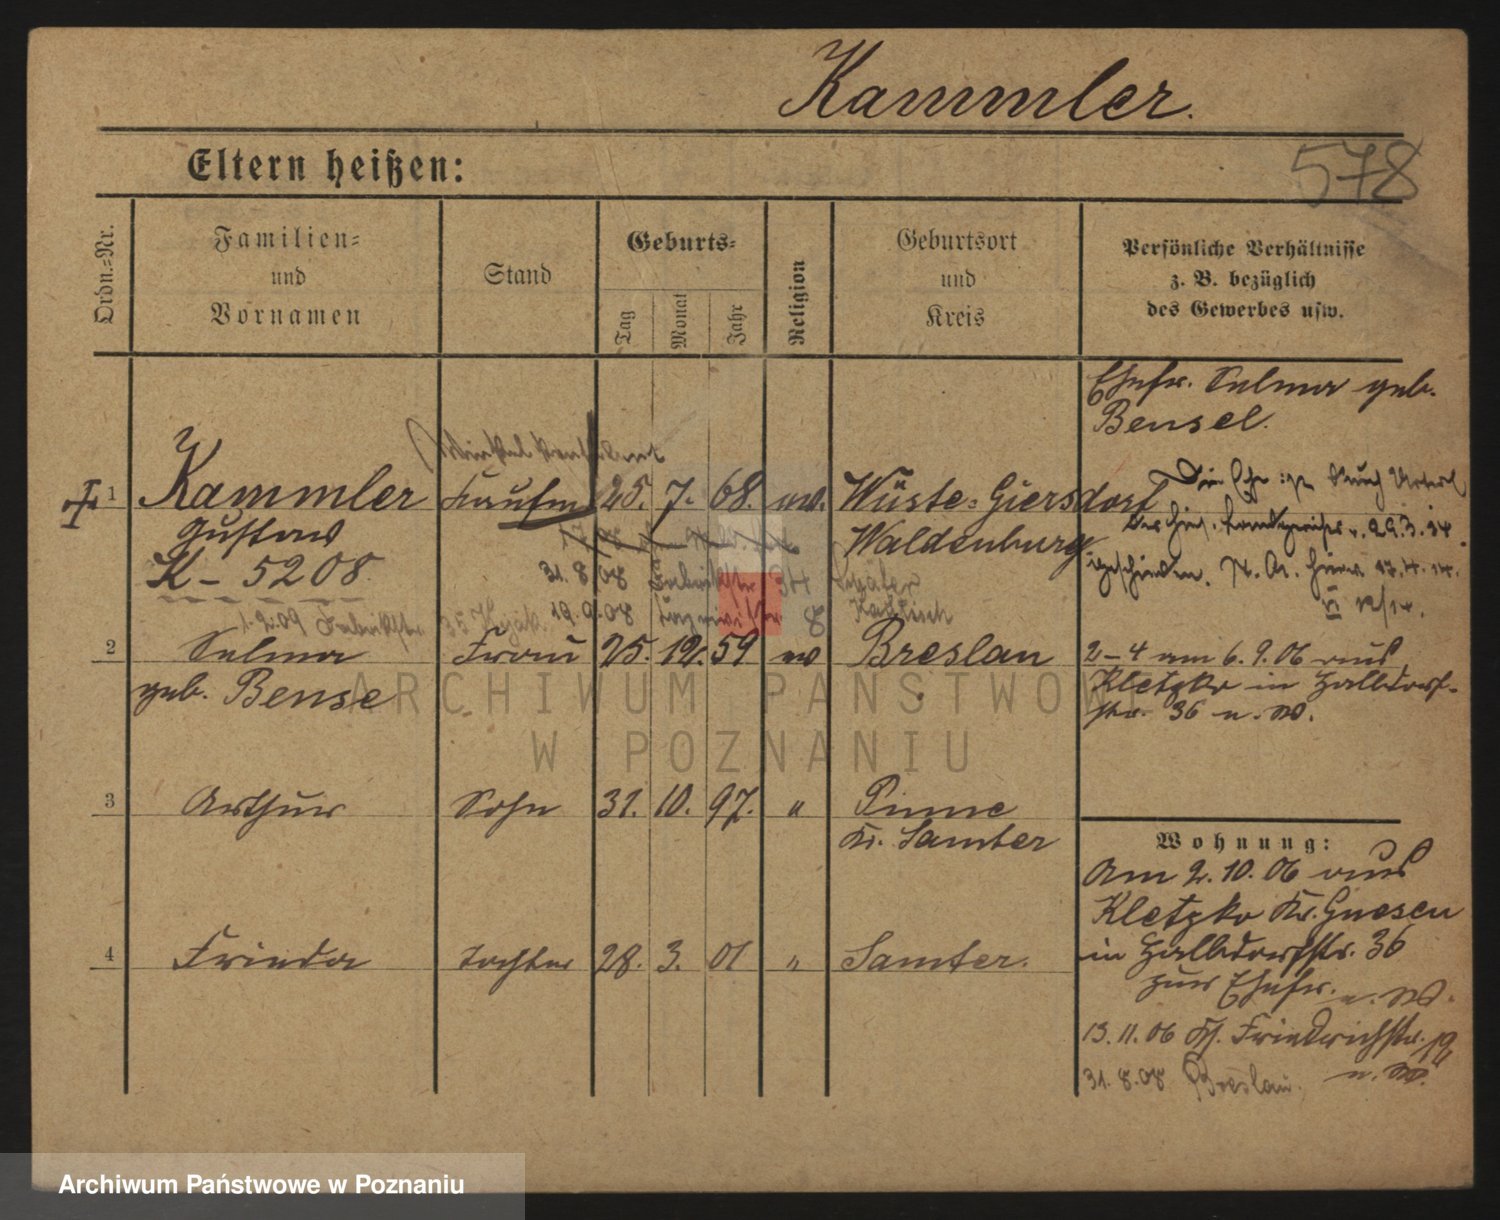 Kammler.
578
Eltern heißen:
Ordn.-Nr.
Familien-
und
Vornamen
Stand
Geburts-
Tag
Monat
Jahr
Religion
Geburtsort
und
Kreis
Persönliche Verhältnisse
z. B. bezüglich
des Gewerbes usw.
Ehefr. Selma geb.
Bensel.
1 Kammler Kaufm 25. 7. 68. ev. Wüste-Giersdorf
Gustav
Waldenburg
K - 5208.
Die Ehe ist durch Urteil
des hies. Landgerichts v. 29.3.14
geschieden.
31.8.08 Fabrikstr 34
19.9.08 8
1.2.09 Fabrikstr. 35
2 Selma Frau 25. 12. 59 ev Breslau
geb. Bense
2-4 am 6.9.06 aus
Kletzko in Halldorf-
str. 36 u. W.
3 Arthur Sohn 31. 10. 97. " Pinne
Kr. Samter
Wohnung:
Am 2.10.06 aus
Kletzko Kr. Gnesen
in Halldorfstr. 36
zur Ehefr. u. W.
4 Frieda Tochter 28. 3. 01 " Samter.
13.11.06 Friedrichstr. 19
u. W.
31.8.08 Breslau.
ARCHIWUM PAŃSTWOWE
W POZNANIU
Archiwum Państwowe w Poznaniu